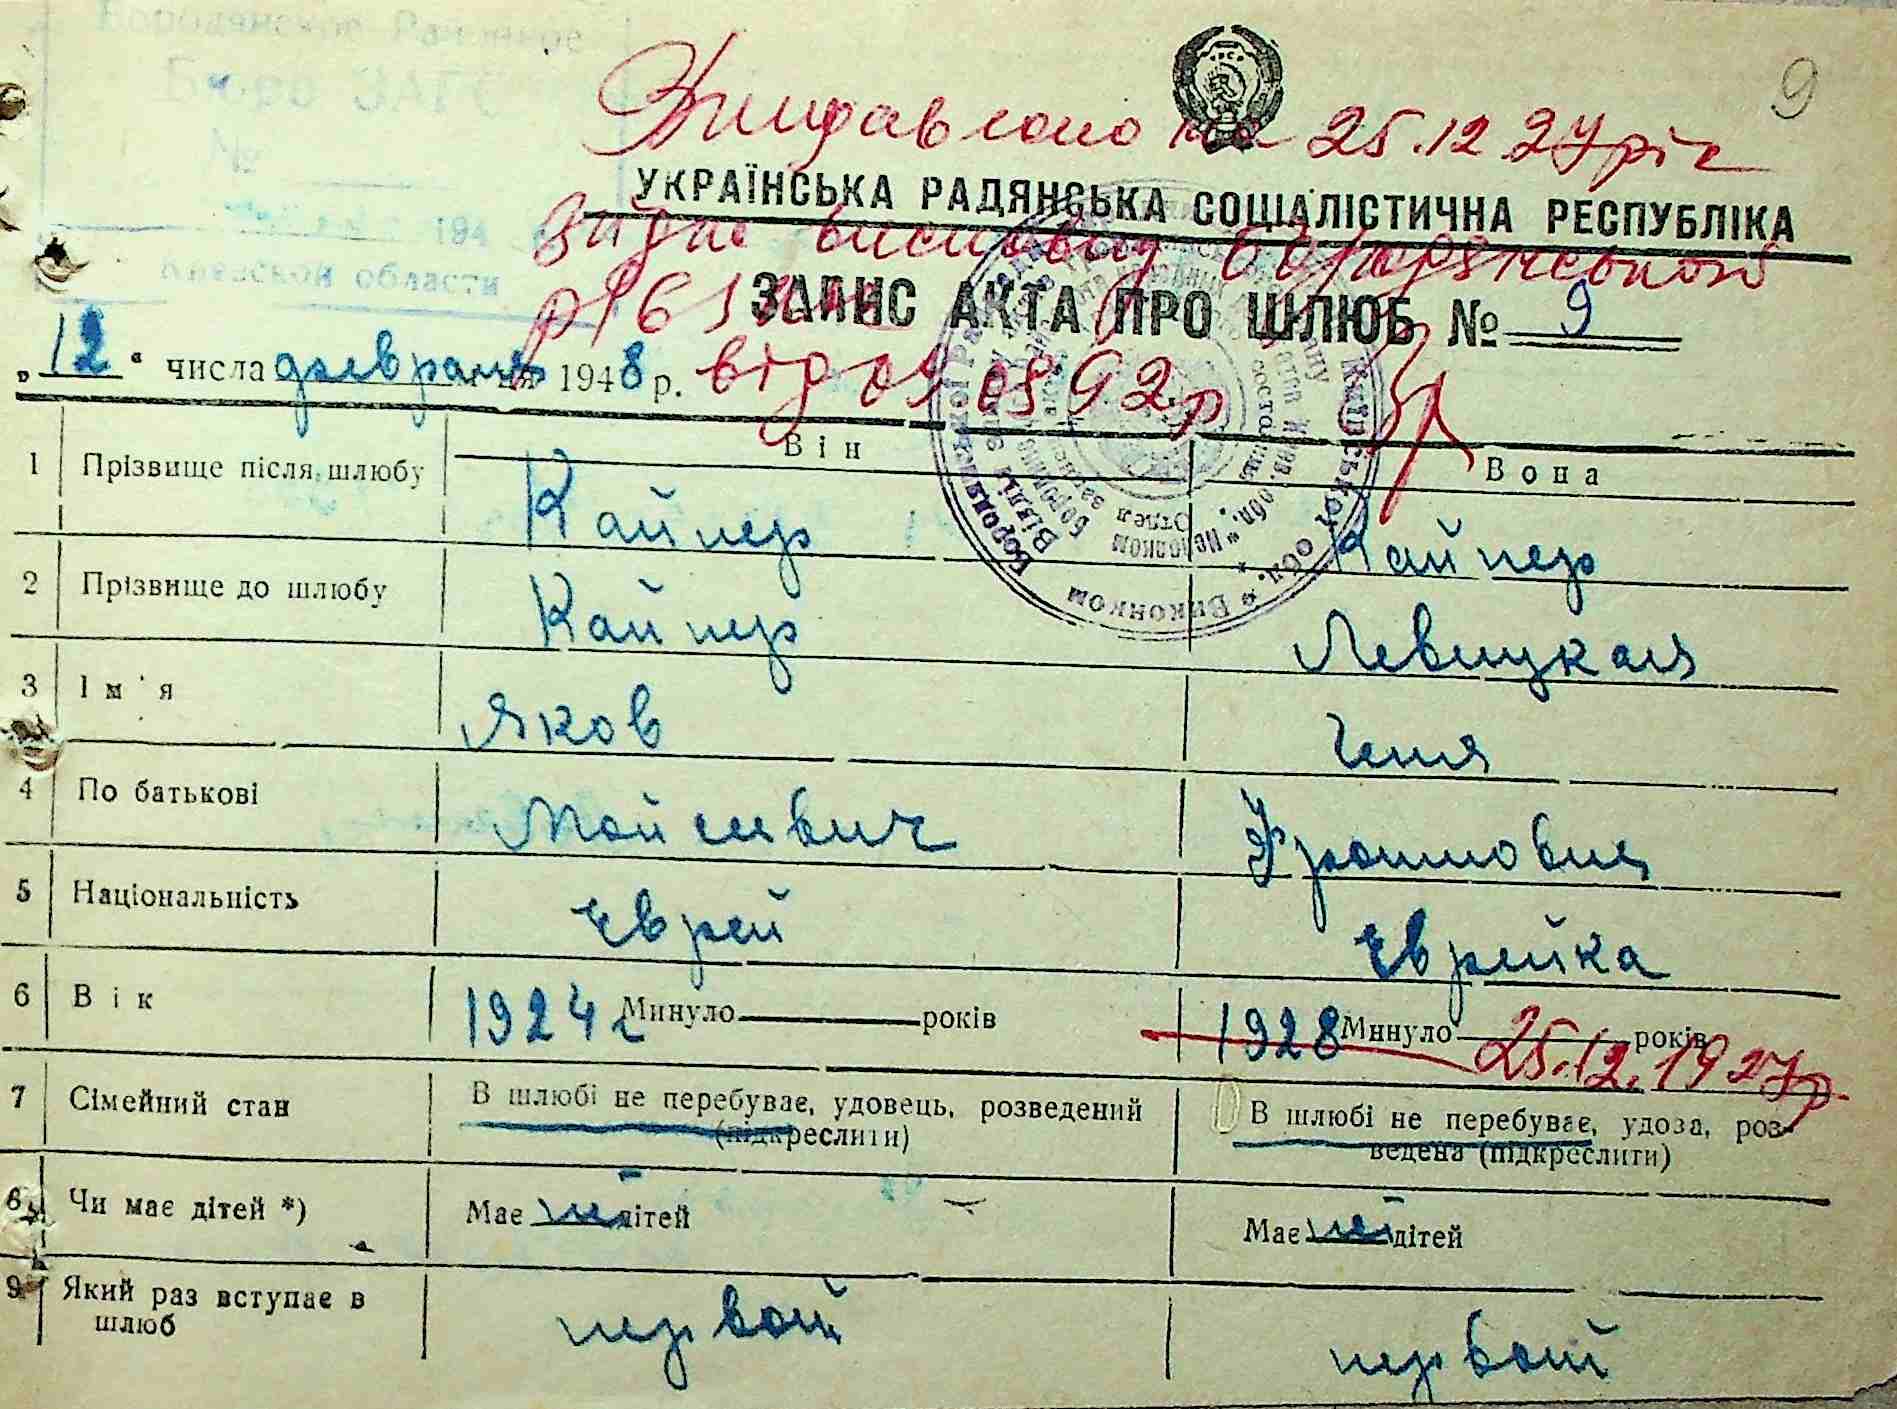 Бородянское Районное
Бюро ЗАГС
№
194
Киевской области
9
Виправлено на 25.12.27 рік
УКРАЇНСЬКА РАДЯНСЬКА СОЦІАЛІСТИЧНА РЕСПУБЛІКА
згідно висновку Бородянського
ЗАПИС АКТА ПРО ШЛЮБ № 9
„12“ числа февраля 1948 р. від
Він Вона
1 Прізвище після шлюбу Кайпер Кайпер
2 Прізвище до шлюбу Кайпер Левицкая
3 Ім'я Яков Геня
4 По батькові Мойсеевич
5 Національність Еврей Еврейка
6 Вік 1924 г Минуло року років 1928 Минуло років 25.12.1927р.
7 Сімейний стан В шлюбі не перебуває, удовець, розведений В шлюбі не перебуває, удова, роз-
(підкреслити) ведена (підкреслити)
8 Чи має дітей *) Має нет дітей Має нет дітей
9 Який раз вступає в
шлюб первый первый